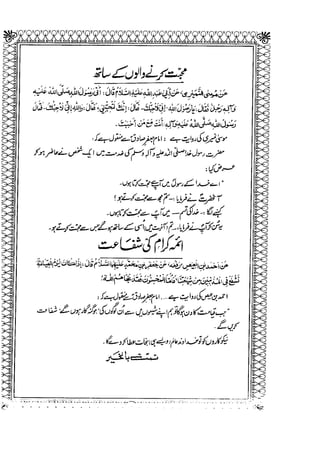 محبّت کرنے والوں کے ساتھ
عَنْ مُوسَى النُّمَيْرِي، عَنْ أَبِي عَبْدِ اللهِ عَلَيْهِ السَّلَامُ قَالَ: أَتَى رَسُولَ اللهِ صَلَّى اللهُ عَلَيْهِ
وَآلِهِ رَجُلٌ فَقَالَ: يَا رَسُولَ اللهِ إِنِّي لَأُحِبُّكَ، فَقَالَ: إِنَّكَ لَتُحِبُّنِي؟ فَقَالَ: وَاللهِ إِنِّي لَأُحِبُّكَ، فَقَالَ
رَسُولُ اللهِ صَلَّى اللهُ عَلَيْهِ وَآلِهِ: أَنْتَ مَعَ مَنْ أَحْبَبْتَ.
موسیٰ نمیری کی روایت ہے: امام جعفر صادقؑ سے منقول ہے کہ:
حضرت رسول خدا صلی اللہ علیہ وآلہ وسلم کی خدمت میں ایک شخص نے حاضر ہو کر
عرض کیا:
"اے خدا کے رسولؐ میں آپ سے محبت کرتا ہوں.
آنحضرتؐ نے فرمایا: تم مجھ سے محبت کرتے ہو؟
کہنے لگا: خدا کی قسم میں آپ سے محبت کرتا ہوں.
تم آخرت میں اُسی کے ساتھ ہو گے جس سے محبت کرتے ہو.
ائمہ کرام کی شفاعت
عَنْ أَحْمَدَ بْنِ رَفَعَهُ، عَنْ جَعْفَرِ بْنِ مُحَمَّدٍ عَلَيْهِمَا السَّلَامُ قَالَ: إِذَا كَانَ يَوْمُ الْقِيَامَةِ
نَشْفَعُ فِي الْمُذْنِبِينَ مِنْ شِيعَتِنَا فَأَمَّا الْمُحْسِنُونَ فَقَدْ نَجَّاهُمُ اللهُ.
احمد بن کی روایت ہے امام جعفر صادقؑ سے منقول ہے کہ:
"جب قیامت کا دن ہوگا تو ہم اپنے شیعوں میں سے اُن لوگوں کی جو گنہگار ہوں گے شفاعت
کریں گے.
نیکو کاروں کو تو خداوند عالم ویسے ہی نجات عطا کر دے گا.
تمت بالخیر